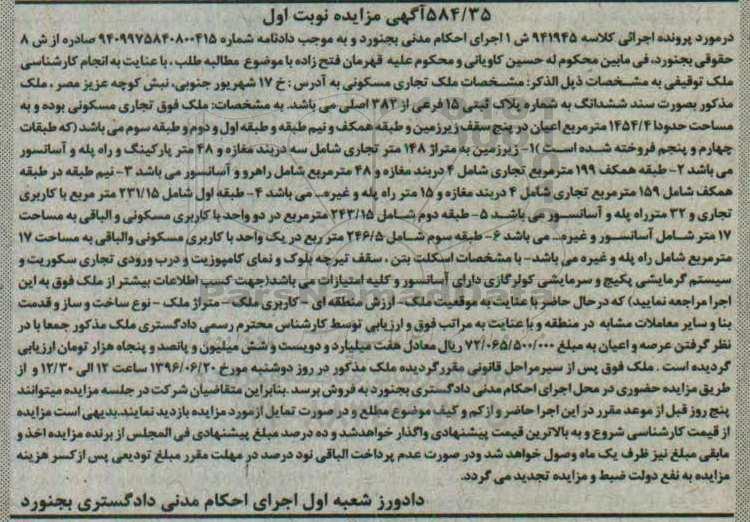 ۵۸۴/۳۵آگهی مزایده نوبت اول
درمورد پرونده اجرائی کلاسه ۹۴۱۹۴۵ ش ۱ اجرای احکام مدنی بجنورد و به موجب دادنامه شماره ۹۴۰۹۹۷۵۸۴۰۸۰۰۴۱۵ صادره از ش ۸
حقوقی بجنورد، فی مابین محکوم له حسین کاویانی و محکوم علیه قهرمان فتح زاده با موضوع مطالبه طلب ، با عنایت به انجام کارشناسی
ملک توقیفی به مشخصات ذیل الذکر: مشخصات ملک تجاری مسکونی به آدرس : خ ۱۷ شهریور جنوبی، نبش کوچه عزیز مصر ، ملک
مذکور بصورت سند ششدانگ به شماره پلاک ثبتی ۱۵ فرعی از ۳۸۲ اصلی می باشد. به مشخصات: ملک فوق تجاری مسکونی بوده و به
مساحت حدودا ۱۴۵۴/۴ مترمربع اعیان در پنج سقف زیرزمین و طبقه همکف و نیم طبقه و طبقه اول و دوم و طبقه سوم می باشد (که طبقات
چهارم و پنجم فروخته شده است )۱- زیرزمین به متراژ ۱۴۸ متر تجاری شامل سه دربند مغازه و ۴۸ متر پارکینگ و راه پله و آسانسور
می باشد ۲- طبقه همکف ۱۹۹ مترمربع تجاری شامل ۴ دربند مغازه و ۴۸ مترمربع شامل راهرو و آسانسور می باشد ۳- نیم طبقه در طبقه
همکف شامل ۱۵۹ مترمربع تجاری شامل ۴ دربند مغازه و ۱۵ متر راه پله و غیره... می باشد ۴- طبقه اول شامل ۲۳۱/۱۵ متر مربع با کاربری
تجاری و ۳۲ متر راه پله و آسانسور می باشد ۵- طبقه دوم شامل ۲۴۳/۱۵ مترمربع در دو واحد با کاربری مسکونی و الباقی به مساحت
۱۷ متر شامل آسانسور و غیره... می باشد ۶- طبقه سوم شامل ۲۴۶/۵ متر ربع در یک واحد با کاربری مسکونی والباقی به مساحت ۱۷
مترمربع شامل راه پله و غیره می باشد- با مشخصات اسکلت بتن ، سقف تیرچه بلوک و نمای کامپوزیت و درب ورودی تجاری سکوریت و
سیستم گرمایشی پکیچ و سرمایشی کولرگازی دارای آسانسور و کلیه امتیازات می باشد(جهت کسب اطلاعات بیشتر از ملک فوق به این
اجرا مراجعه نمایید) که درحال حاضر با عنایت به موقعیت ملک- ارزش منطقه ای - کاربری ملک - متراژ ملک - نوع ساخت و ساز و قدمت
بنا و سایر معاملات مشابه در منطقه و با عنایت به مراتب فوق و ارزیابی توسط کارشناس محترم رسمی دادگستری ملک مذکور جمعا با در
نظر گرفتن عرصه و اعیان به مبلغ ۷۲/۰۶۵/۵۰۰/۰۰۰ ریال معادل هفت میلیارد و دویست و شش میلیون و پانصد و پنجاه هزار تومان ارزیابی
گردیده است . ملک فوق پس از سیر مراحل قانونی مقرر گردیده ملک مذکور در روز دوشنبه مورخ ۱۳۹۶/۰۶/۲۰ ساعت ۱۲ الی ۱۲/۳۰ و از
طریق مزایده حضوری در محل اجرای احکام مدنی دادگستری بجنورد به فروش برسد .بنابراین متقاضیان شرکت در جلسه مزایده میتوانند
پنج روز قبل از موعد مقرر در این اجرا حاضر و از کم و کیف موضوع مطلع و در صورت تمایل از مورد مزایده بازدید نمایند.بدیهی است مزایده
از قیمت کارشناسی شروع و به بالاترین قیمت پیشنهادی واگذار خواهدشد و ده درصد مبلغ پیشنهادی فی المجلس از برنده مزایده اخذ و
مابقی مبلغ نیز ظرف یک ماه وصول خواهد شد ودر صورت عدم پرداخت الباقی نود درصد در مهلت مقرر مبلغ تودیعی پس از کسر هزینه
مزایده به نفع دولت ضبط و مزایده تجدید می گردد.
دادورز شعبه اول اجرای احکام مدنی دادگستری بجنورد